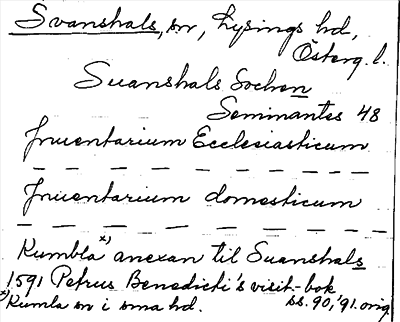 Svanshals, sn, Lysings hd,
Österg. l.
Suanshals Sochen
Seminantes 48
Inuentarium Ecclesiasticum
— — — — — — — — —
Inuentarium domesticum
— — — — — — — — —
Kumbla x) anexan til Suanshals
1591 Petrus Benedicti's visit-bok
x) Kumla sn i sma hd. ss. 90, '91. orig